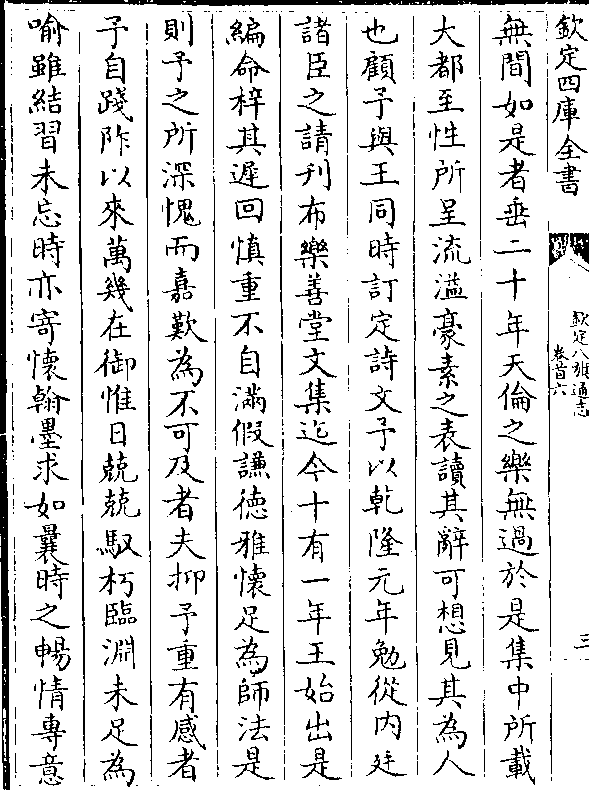 欽定四庫全書
欽定八旗通志
卷首六
三
無間如是者垂二十年天倫之樂無過於是集中所載
大都至性所呈流溢豪素之表讀其辭可想見其為人
也顧予與王同時訂定詩文予以乾隆元年勉從內廷
諸臣之請刊布樂善堂文集迄今十有一年王始出是
編命梓其遲回慎重不自滿假謙德雅懷足為師法是
則予之所深愧而嘉歎為不可及者夫抑予重有感者
予自踐阼以來萬幾在御惟日兢兢馭朽臨淵未足為
喻雖結習未忘時亦寄懷翰墨求如曩時之暢情專意